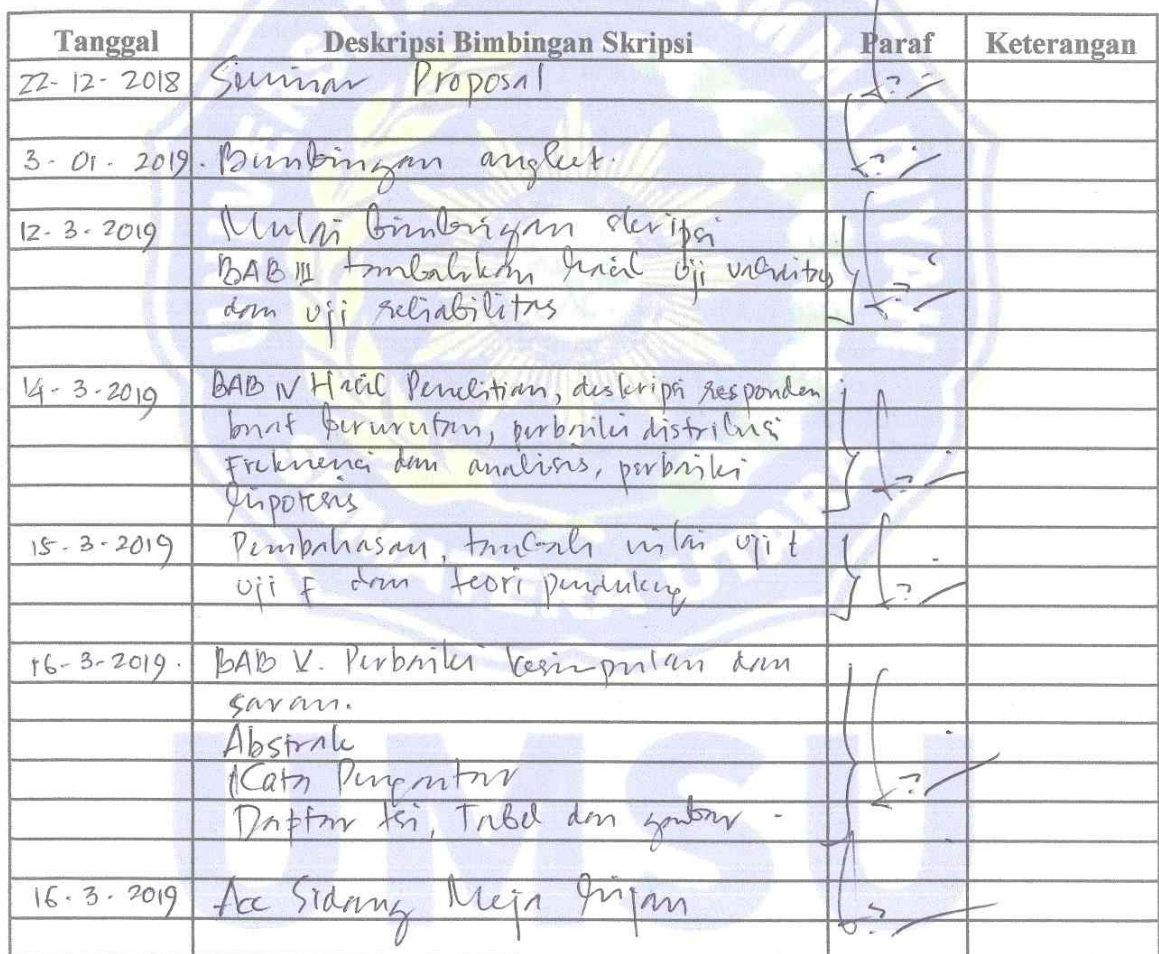 Tanggal Deskripsi Bimbingan Skripsi Paraf Keterangan
22-12-2018 Seminar Proposal
3-01-2019. Bimbingan angket.
12-3-2019 Mulai bimbingan skripsi
BAB III tambahkan hasil uji validitas
dan uji reliabilitas
14-3-2019 BAB IV Hasil Penelitian, deskripsi responden
buat berurutan, perbaiki distribusi
Frekuensi dan analisis, perbaiki
hipotesis
15-3-2019 Pembahasan, tambah nilai uji t
uji F dan teori pendukung
16-3-2019. BAB V. Perbaiki kesimpulan dan
saran.
Abstrak
Kata Pengantar
Daftar isi, Tabel dan gambar.
16-3-2019 Acc Sidang Meja Hijau
UMSU